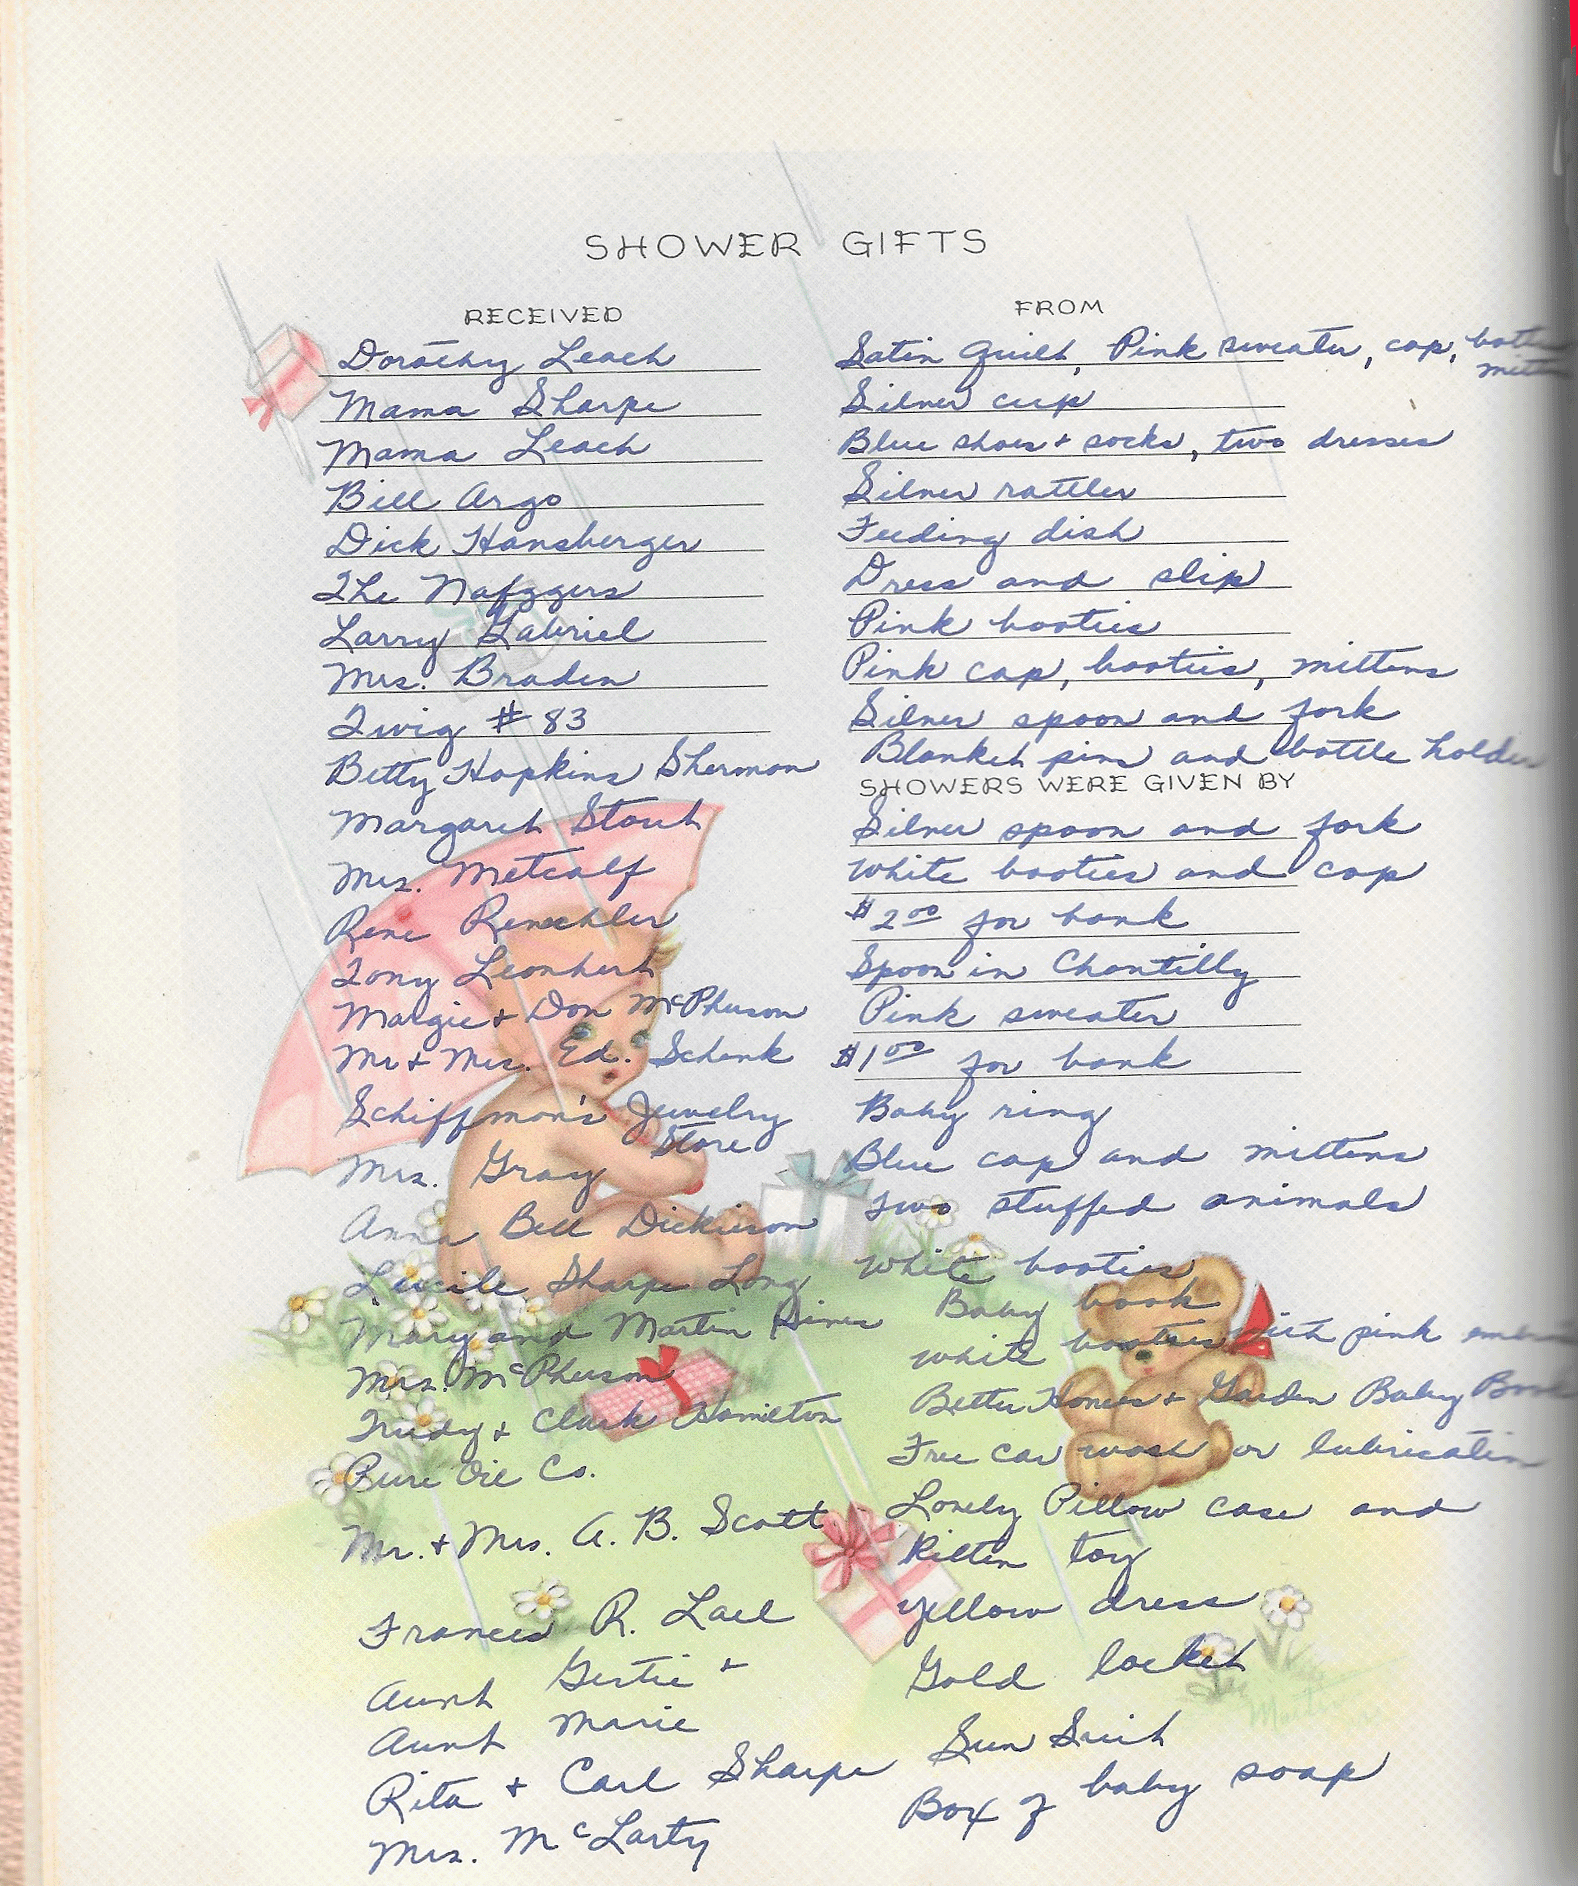 SHOWER GIFTS
RECEIVED FROM
Dorothy Leach Satin Quilt, Pink sweater, cap,
Mama Sharpe Silver cup
Mama Leach Blue shoes + socks, two dresses
Bill Argo Silver rattler
Dick Hansberger Feeding dish
The Nafzgers Dress and slip
Larry Gabriel Pink booties
Mrs. Braden Pink cap, booties, mittens
Twig #83 Silver spoon and fork
Betty Hopkins Sherman Blanket pins and bottle holder
SHOWERS WERE GIVEN BY
Margaret Stout Silver spoon and fork
Mrs. Metcalf White booties and cap
Rene $2.00 for bank
Tony Leonhert Spoon in Chantilly
Margie + Don McPherson Pink sweater
Mr + Mrs. Ed. Schenk $1.00 for bank
Schiffman's Jewelry Baby ring
Store
Mrs. Gray Blue cap and mittens
Anna Bell Dickieson Two stuffed animals
Lucile Sharpe Long White booties
Mary and Martin Hines Baby book
Mrs. McPherson White booties with pink
Trudy + Clark Hamilton Better Homes + Garden Baby Book
Pure Oil Co. Free car wash or lubrication
Mr. + Mrs. A. B. Scott Lovely Pillow case and
Kitten toy
Frances R. Lael Yellow dress
Aunt Gertie + Gold locket
Aunt Marie
Rita + Carl Sharpe Sun Suit
Mrs. McLarty Box of baby soap